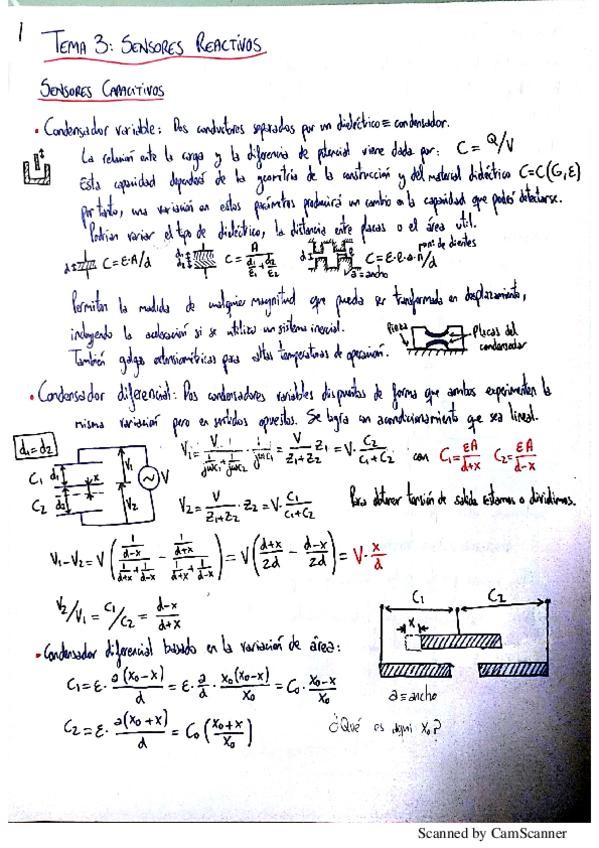 1
TEMA 3: SENSORES REACTIVOS
SENSORES CAPACITIVOS
• Condensador variable: Dos conductores separados por un dieléctrico ≡ condensador.
La relación entre la carga y la diferencia de potencial viene dada por: C = Q/V
Esta capacidad dependerá de la geometría de la construcción y del material dieléctrico C=C(G,E)
por tanto, una variación en estos parámetros producirá un cambio en la capacidad que podrá detectarse.
Podrían variar el tipo de dieléctrico, la distancia entre placas o el área útil.
d C=ε·A/d d1 d2 C = A / (d1/ε1 + d2/ε2) d C=ε·e·a·n/d
a≡ancho
Permiten la medida de cualquier magnitud que pueda ser transformada en desplazamiento,
incluyendo la aceleración si se utiliza un sistema inercial.
También galgas extensiométricas para altas temperaturas de operación.
Pieza Placas del condensador
• Condensador diferencial: Dos condensadores variables dispuestos de forma que ambos experimenten la
misma variación pero en sentidos opuestos. Se logra un acondicionamiento que sea lineal.
d1=d2
C1 d1 x V1 V
C2 d2 V2
V1 = V / (1/jωC1 + 1/jωC2) · 1/jωC1 = V/(Z1+Z2) Z1 = V· C2/(C1+C2) con C1 = εA/(d+x) C2 = εA/(d-x)
V2 = V/(Z1+Z2) · Z2 = V· C1/(C1+C2) Para obtener tensión de salida restamos o dividimos.
V1-V2 = V ( (1/(d-x)) / (1/(d+x) + 1/(d-x)) - (1/(d+x)) / (1/(d+x) + 1/(d-x)) ) = V ( (d+x)/2d - (d-x)/2d ) = V· x/d
V2/V1 = C1/C2 = (d-x)/(d+x)
• Condensador diferencial basado en la variación de área:
C1 = ε· a(x0-x)/d = ε· a/d · x0(x0-x)/x0 = C0· (x0-x)/x0
C2 = ε· a(x0+x)/d = C0 ((x0+x)/x0)
C1 C2
x
a≡ancho
¿Qué es aquí x0?
Scanned by CamScanner